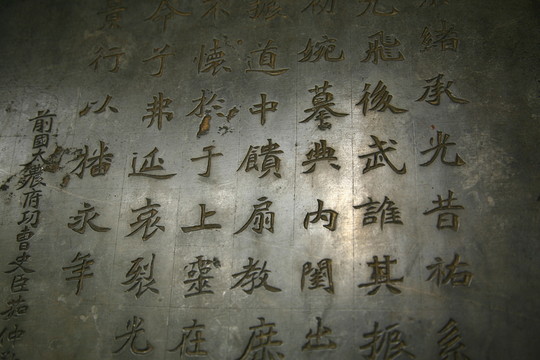 緒承光昔祐
飛後武誰其振
初婉墓典內閨出
道中饋扇教庶
不懷於于上靈在
予弗延哀裂光
行以播永年
前國大農府功曹史臣若仲